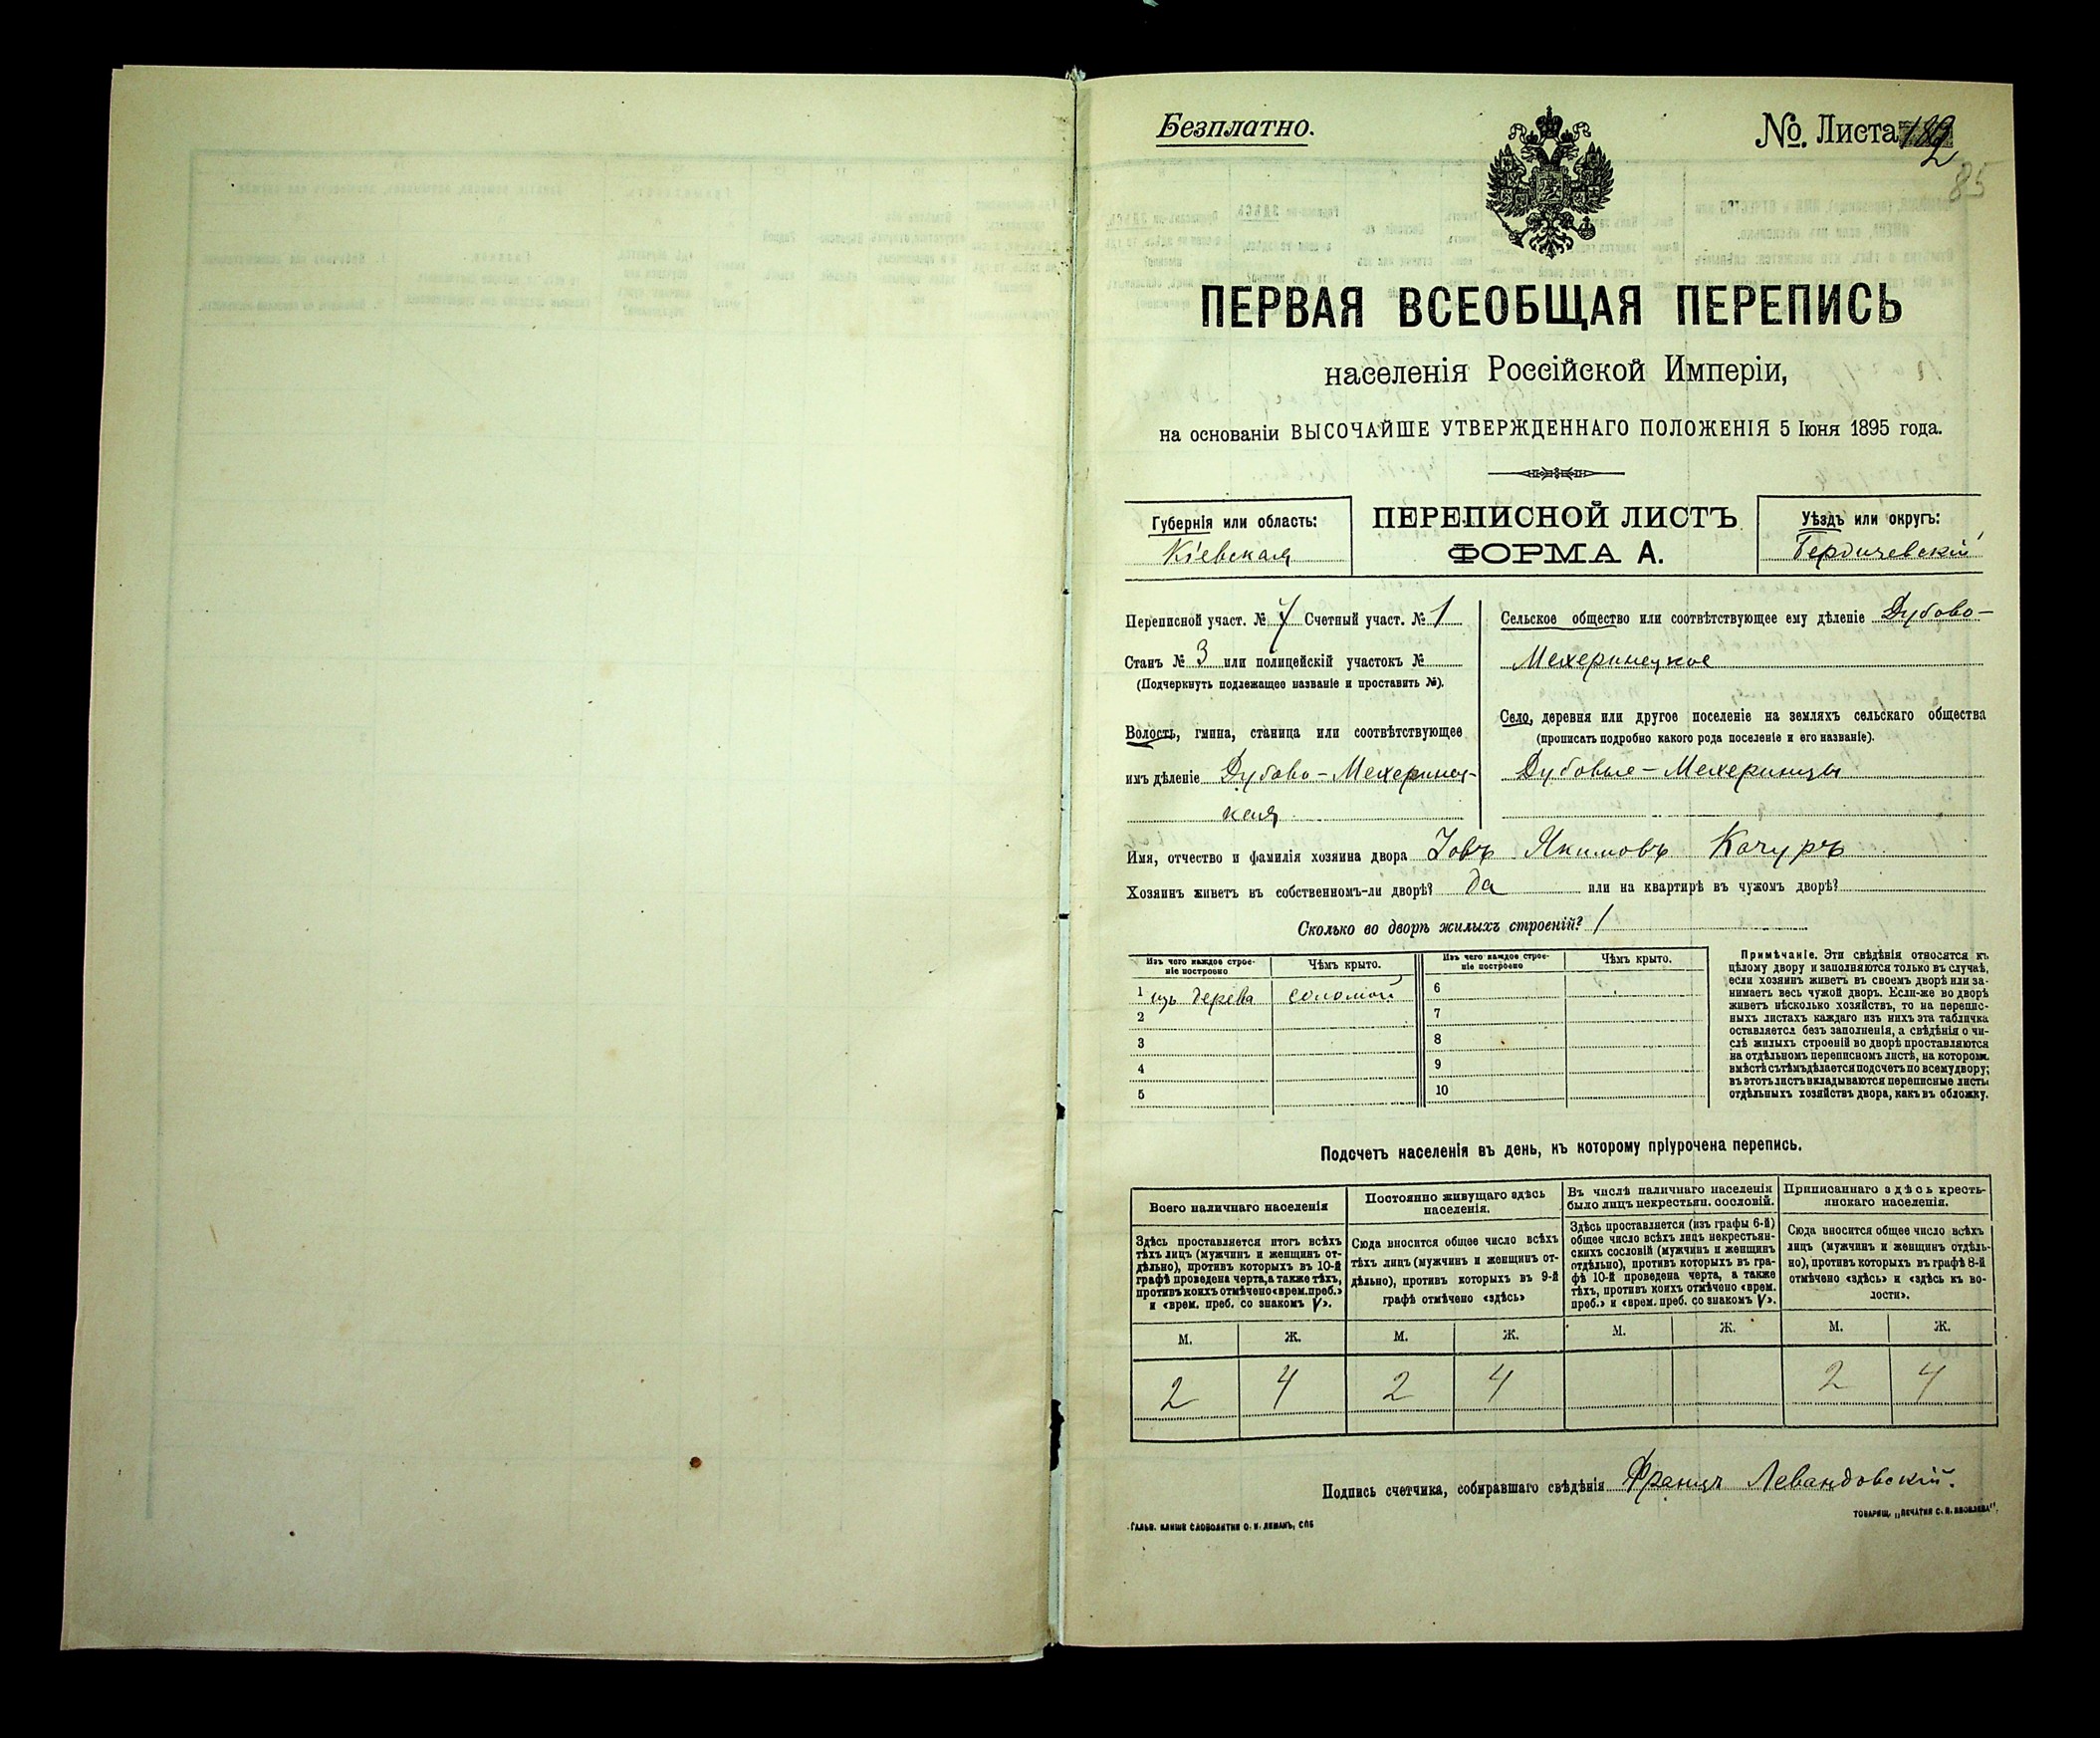 Безплатно.
№. Листа
85
ПЕРВАЯ ВСЕОБЩАЯ ПЕРЕПИСЬ
населенія Россійской Имперіи,
на основаніи ВЫСОЧАЙШЕ УТВЕРЖДЕННАГО ПОЛОЖЕНІЯ 5 Іюня 1895 года.
Губернія или область:
Кіевская
ПЕРЕПИСНОЙ ЛИСТЪ
ФОРМА А.
Уѣздъ или округъ:
Бердичевскій
Переписной участ. № Счетный участ. № 1
Станъ № 3 или полицейскій участокъ №
(Подчеркнуть подлежащее названіе и проставить №).
Волость, гмина, станица или соотвѣтствующее
имъ дѣленіе Дубово-Мехеринец-
кая
Сельское общество или соотвѣтствующее ему дѣленіе Дубово-
Мехеринецкое
Село, деревня или другое поселеніе на земляхъ сельскаго общества
(прописать подробно какого рода поселеніе и его названіе).
Дубовые-Мехеринцы
Имя, отчество и фамилія хозяина двора Іовъ Якимовъ Качуръ
Хозяинъ живетъ въ собственномъ-ли дворѣ? да или на квартирѣ въ чужомъ дворѣ?
Сколько во дворѣ жилыхъ строеній? 1
Изъ чего каждое строе-
ніе построено
Чѣмъ крыто.
Изъ чего каждое строе-
ніе построено
Чѣмъ крыто.
1 изъ дерева соломой
2
3
4
5
6
7
8
9
10
Примѣчаніе. Эти свѣдѣнія относятся къ
цѣлому двору и заполняются только въ случаѣ,
если хозяинъ живетъ въ своемъ дворѣ или за-
нимаетъ весь чужой дворъ. Если-же во дворѣ
живетъ нѣсколько хозяйствъ, то на перепис-
ныхъ листахъ каждаго изъ нихъ эта табличка
оставляется безъ заполненія, а свѣдѣнія о чи-
слѣ жилыхъ строеній во дворѣ проставляются
на отдѣльномъ переписномъ листѣ, на которомъ
вмѣстѣ съ тѣмъ дѣлается подсчетъ по всему двору;
въ этотъ листъ вкладываются переписные листы
отдѣльныхъ хозяйствъ двора, какъ въ обложку.
Подсчетъ населенія въ день, къ которому пріурочена перепись.
Всего наличнаго населенія
Здѣсь проставляется итогъ всѣхъ
тѣхъ лицъ (мужчинъ и женщинъ от-
дѣльно), противъ которыхъ въ 10-й
графѣ проведена черта, а также тѣхъ,
противъ коихъ отмѣчено «врем. преб.»
и «врем. преб. со знакомъ V».
Постоянно живущаго здѣсь
населенія.
Сюда вносится общее число всѣхъ
тѣхъ лицъ (мужчинъ и женщинъ от-
дѣльно), противъ которыхъ въ 9-й
графѣ отмѣчено «здѣсь»
Въ числѣ наличнаго населенія
было лицъ некрестьян. сословій.
Здѣсь проставляется (изъ графы 6-й)
общее число всѣхъ лицъ некрестьян-
скихъ сословій (мужчинъ и женщинъ
отдѣльно), противъ которыхъ въ гра-
фѣ 10-й проведена черта, а также
тѣхъ, противъ коихъ отмѣчено «врем.
преб.» и «врем. преб. со знакомъ V».
Приписаннаго здѣсь кресть-
янскаго населенія.
Сюда вносится общее число всѣхъ
лицъ (мужчинъ и женщинъ отдѣль-
но), противъ которыхъ въ графѣ 8-й
отмѣчено «здѣсь» и «здѣсь къ во-
лости».
М. Ж. М. Ж. М. Ж. М. Ж.
2 4 2 4 2 4
Подпись счетчика, собиравшаго свѣдѣнія Францъ Левандовскій.
Гальв. клише словолитни О. И. Леманъ, СПБ
Товарищ. „Печатня С. П. Яковлева".